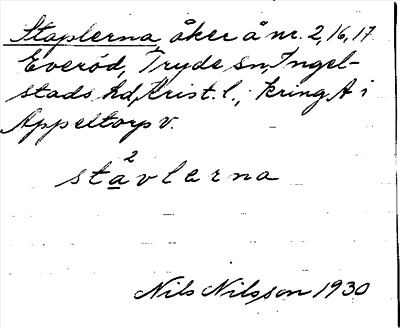 Staplerna, åker å nr. 2, 16, 17
Everöd, Tryde sn, Ingel-
stads hd, Krist. l.; kring A i
Appeltorp v.
2
stavlerna
Nils Nilsson 1930